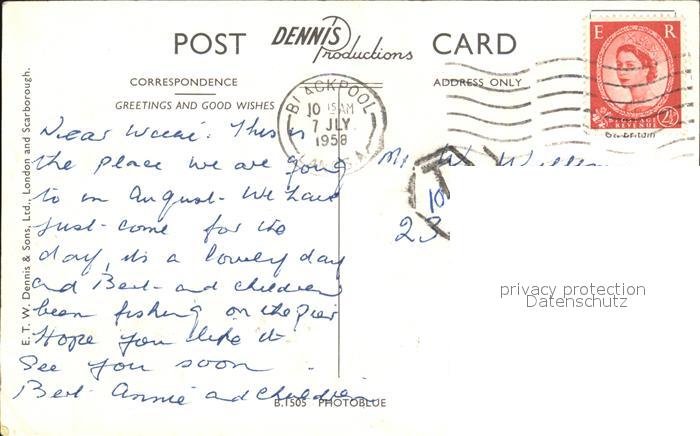 POST DENNIS Productions CARD
CORRESPONDENCE
ADDRESS ONLY
GREETINGS AND GOOD WISHES
E. T. W. Dennis & Sons, Ltd., London and Scarborough.
E R
2½
REVENUE
Gt. Britain
BLACKPOOL
10 15AM
7 JLY
1958
Dear Willie. This is
the place we are going
to in August. We have
just come for the
day, its a lovely day
and Bert and children
been fishing on the Pier
Hope you like it
See you soon.
Bert Annie and children
Mr W.
T
10
23
privacy protection
Datenschutz
B.1505 PHOTOBLUE